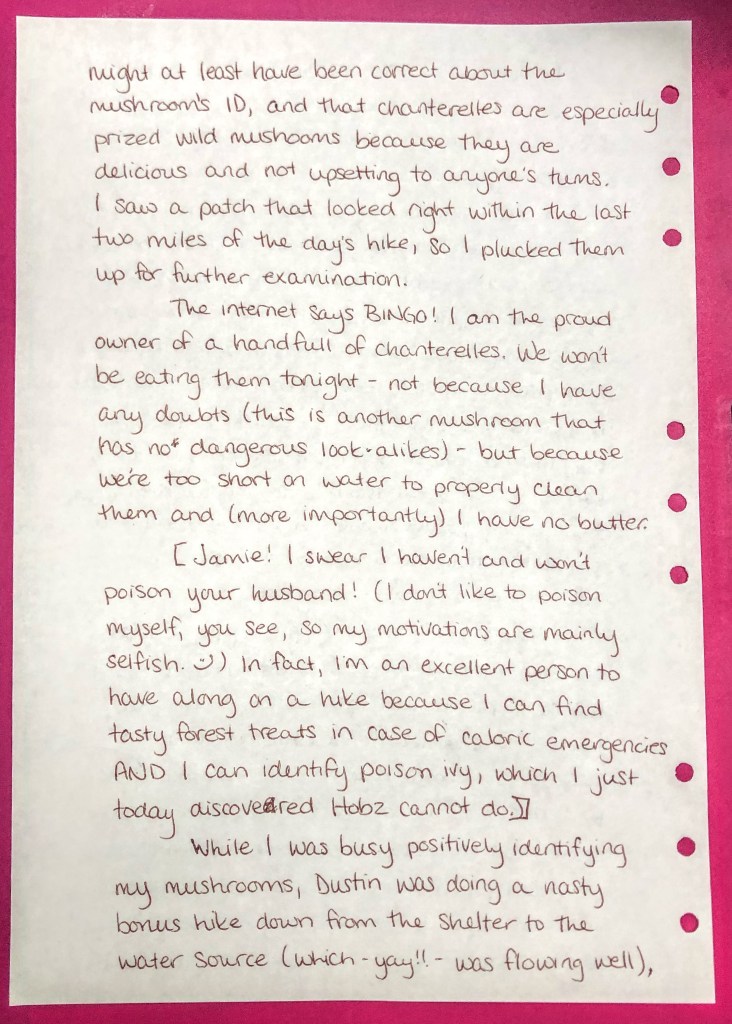 might at least have been correct about the
mushroom's ID, and that chanterelles are especially
prized wild mushooms because they are
delicious and not upsetting to anyone's tums.
I saw a patch that looked right within the last
two miles of the day's hike, so I plucked them
up for further examination.
The internet says BINGO! I am the proud
owner of a handfull of chanterelles. We won't
be eating them tonight - not because I have
any doubts (this is another mushroom that
has no* dangerous look-alikes) - but because
we're too short on water to properly clean
them and (more importantly) I have no butter.
[Jamie! I swear I haven't and won't
poison your husband! (I don't like to poison
myself, you see, so my motivations are mainly
selfish. :)) In fact, I'm an excellent person to
have along on a hike because I can find
tasty forest treats in case of caloric emergencies
AND I can identify poison ivy, which I just
today discovered Hobz cannot do.]
While I was busy positively identifying
my mushrooms, Dustin was doing a nasty
bonus hike down from the shelter to the
water source (which - yay!! - was flowing well),